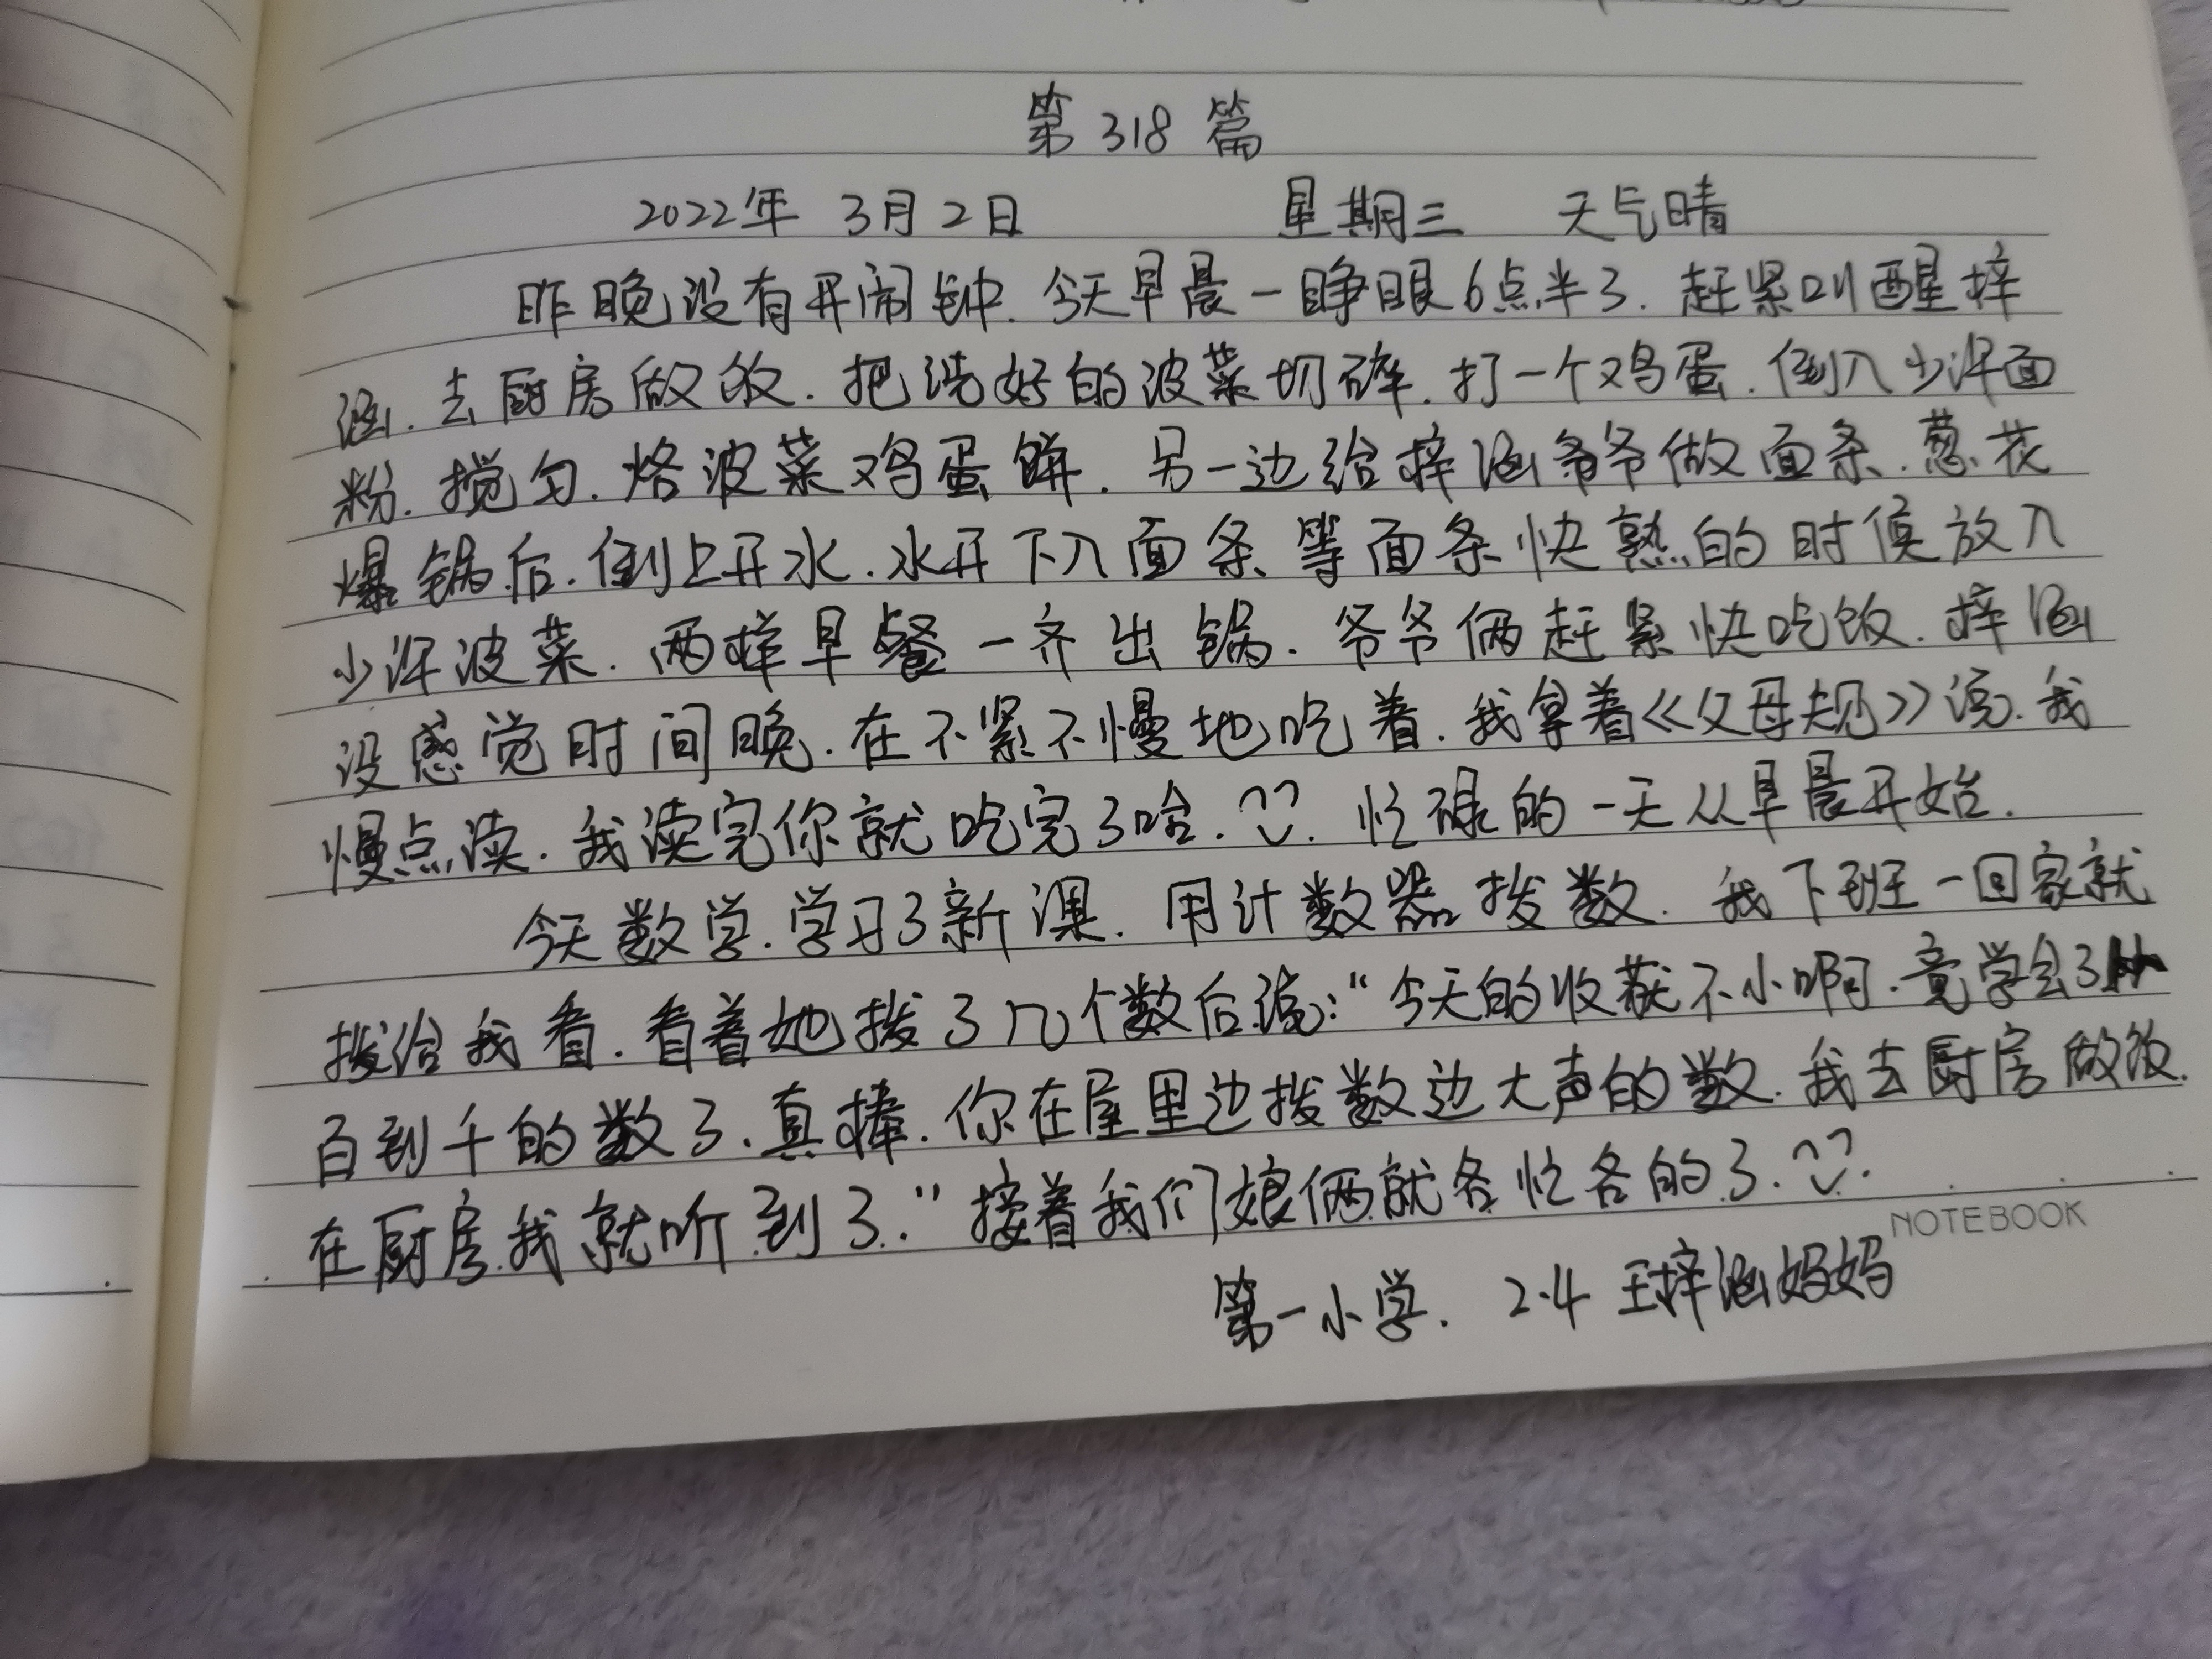 第318篇
2022年 3月2日 星期三 天气晴
昨晚没有开闹钟.今天早晨一睁眼6点半了.赶紧叫醒梓
涵.去厨房做饭.把洗好的波菜切碎.打一个鸡蛋.倒入少许面
粉.搅匀.烙波菜鸡蛋饼.另一边给梓涵爷爷做面条.葱花
爆锅后.倒上开水.水开下入面条.等面条快熟的时候放入
少许波菜.两样早餐一齐出锅.爷爷俩赶紧快吃饭.梓涵
没感觉时间晚.在不紧不慢地吃着.我拿着《父母规》说.我
慢点读.我读完你就吃完了哈.忙碌的一天从早晨开始.
今天数学.学习了新课.用计数器拨数.我下班一回家就
拨给我看.看着她拨了几个数后说:“今天的收获不小啊.竟学会了
百到千的数了.真棒.你在屋里边拨数边大声的数.我去厨房做饭.
在厨房我就听到了.”接着我们娘俩就各忙各的了.
NOTEBOOK
第一小学. 2.4 王梓涵妈妈